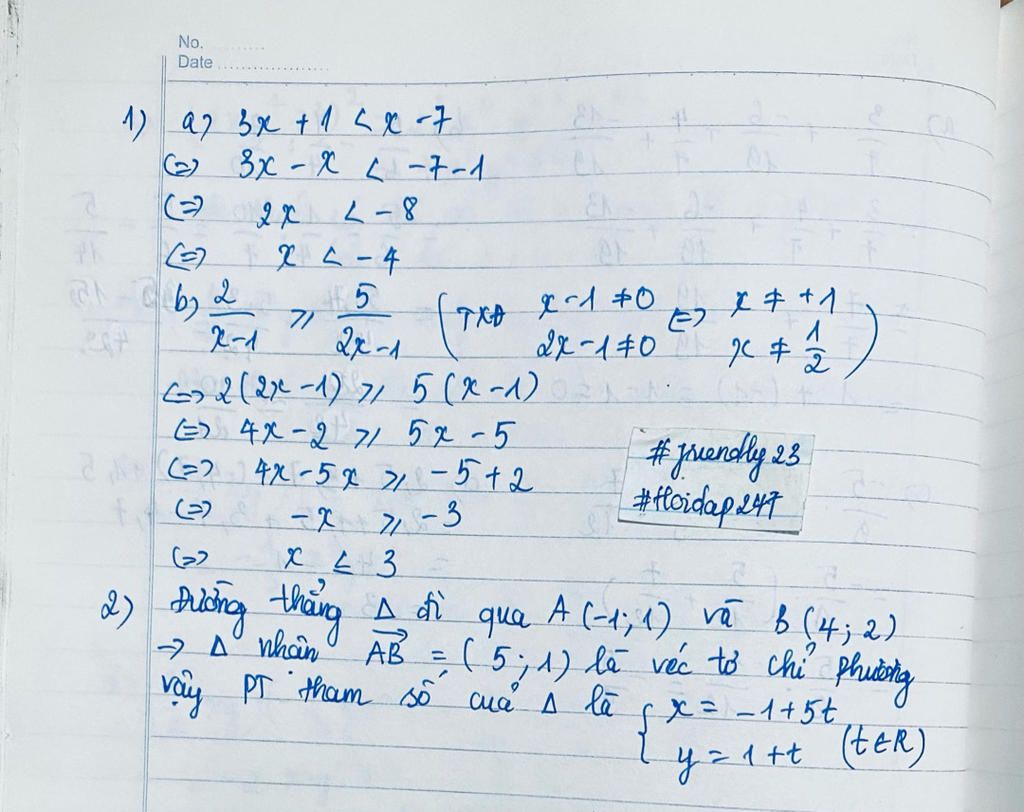 No. ..........
Date ..................
1) a) 3x + 1 < x - 7
<=> 3x - x < -7 - 1
<=> 2x < -8
<=> x < -4
b) 2/(x-1) ⩾ 5/(2x-1) (TXĐ x - 1 ≠ 0 <=> x ≠ +1
2x - 1 ≠ 0 x ≠ 1/2)
<=> 2(2x - 1) ⩾ 5(x - 1)
<=> 4x - 2 ⩾ 5x - 5
<=> 4x - 5x ⩾ -5 + 2
<=> -x ⩾ -3
<=> x ≤ 3
#friendly23
#Hoidap247
2) Đường thẳng Δ đi qua A(-1; 1) và B(4; 2)
→ Δ nhận AB = (5; 1) là véc tơ chỉ phương
vậy PT tham số của Δ là { x = -1 + 5t
y = 1 + t (t ∈ R)